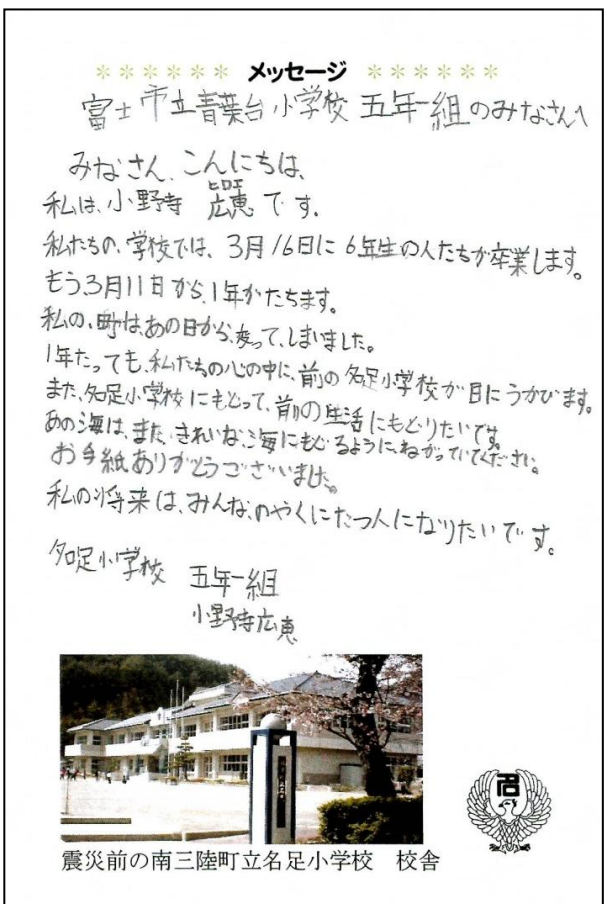 ＊＊＊＊＊＊ メッセージ ＊＊＊＊＊＊
富士市立青葉台小学校 五年一組のみなさんへ
みなさん、こんにちは、
ヒロエ
私は、小野寺 広恵です。
私たちの、学校では、3月16日に6年生の人たちが卒業します。
もう、3月11日から、1年がたちます。
私の、町は、あの日から、変って、しまいました。
1年たっても、私たちの心の中に、前の名足小学校が目にうかびます。
また、名足小学校にもどって、前の生活にもどりたいです。
あの海は、また、きれいな、海にもどるように、ねがっていてください。
お手紙ありがとうございました。
私の将来は、みんな、のやくにたつ人になりたいです。
名足小学校 五年一組
小野寺広恵
名
震災前の南三陸町立名足小学校 校舎